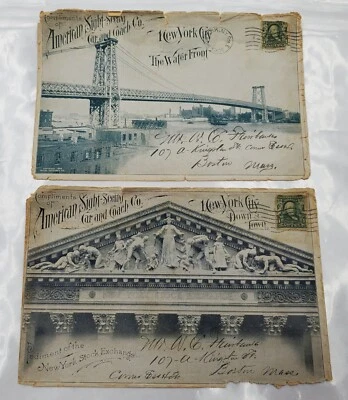 Compliments of
American Sight-Seeing
Car and Coach Co.
New York City
The Water Front
Mr. W. E.
107 A Kingston St.
Boston
Mass.
Compliments of
American Sight-Seeing
Car and Coach Co.
New York City
Down Town
Pediment of the
New York Stock Exchange
Mr. W. E.
107-A Kingston St.
Boston Mass